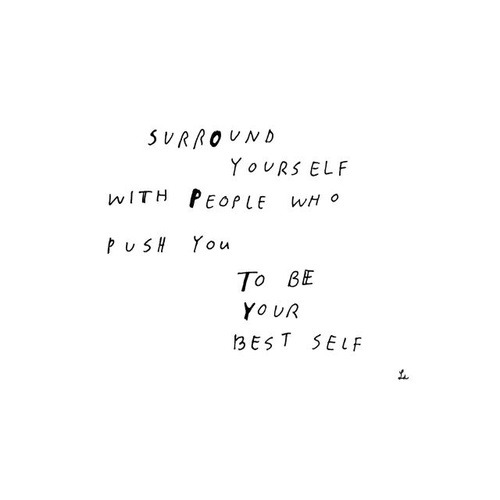 SURROUND
YOURSELF
WITH PEOPLE WHO
PUSH YOU
TO BE
YOUR
BEST SELF